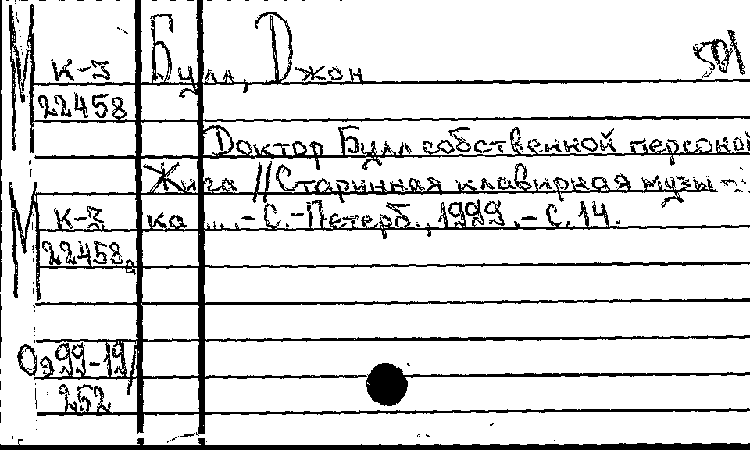 М К-3 Булл, Джон 501
22458
Доктор Булл собственной персоной
Жига // Старинная клавирная музы-
М К-3 ка ... - С.-Петерб., 1999. - С. 14.
22458а
Оэ99-19/
252